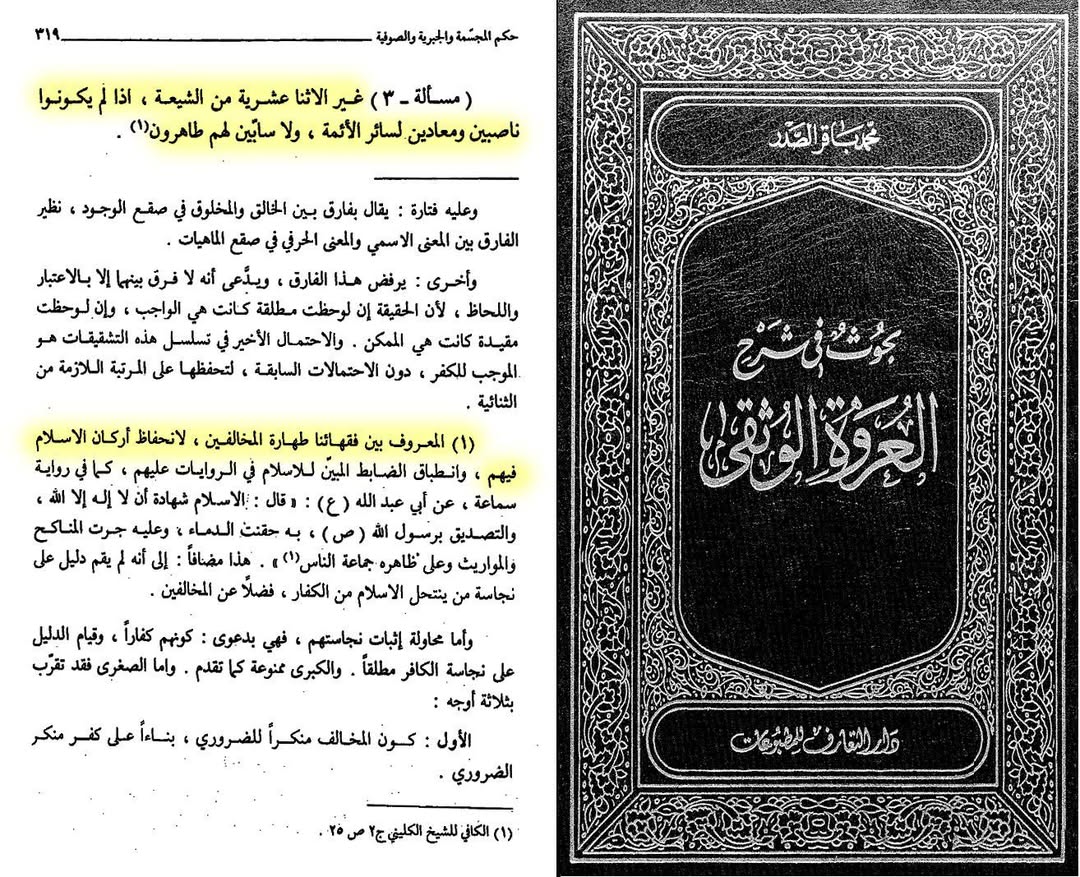 حكم المجسّمة والجبرية والصوفية ٣١٩
( مسألة ـ ٣ ) غير الاثنا عشرية من الشيعة ، اذا لم يكونوا
ناصبين ومعادين لسائر الأئمة ، ولا سابّين لهم طاهرون(١) .
وعليه فتارة : يقال بفارق بين الخالق والمخلوق في صقع الوجود ، نظير
الفارق بين المعنى الاسمي والمعنى الحرفي في صقع الماهيات .
وأخرى : يرفض هذا الفارق ، ويدَّعى أنه لا فرق بينهما إلا بالاعتبار
واللحاظ ، لأن الحقيقة إن لوحظت مطلقة كانت هي الواجب ، وإن لوحظت
مقيدة كانت هي الممكن . والاحتمال الأخير في تسلسل هذه التشقيقات هو
الموجب للكفر ، دون الاحتمالات السابقة ، لتحفظها على المرتبة اللازمة من
الثنائية .
(١) المعروف بين فقهائنا طهارة المخالفين ، لانحفاظ أركان الاسلام
فيهم ، وانطباق الضابط المبيّن للاسلام في الروايات عليهم ، كما في رواية
سماعة ، عن أبي عبد الله (ع) : « قال : الاسلام شهادة أن لا إله إلا الله ،
والتصديق برسول الله (ص) ، به حقنت الدماء ، وعليه جرت المناكح
والمواريث وعلى ظاهره جماعة الناس(١) » . هذا مضافاً : إلى أنه لم يقم دليل على
نجاسة من ينتحل الاسلام من الكفار ، فضلًا عن المخالفين .
وأما محاولة إثبات نجاستهم ، فهي بدعوى : كونهم كفاراً ، وقيام الدليل
على نجاسة الكافر مطلقاً . والكبرى ممنوعة كما تقدم . واما الصغرى فقد تقرّب
بثلاثة أوجه :
الأول : كون المخالف منكراً للضروري ، بناءاً على كفر منكر
الضروري .
(١) الكافي للشيخ الكليني ج٢ ص ٢٥ .
محمد باقر الصدر
بحوث في شرح
العروة الوثقى
دار التعارف للمطبوعات